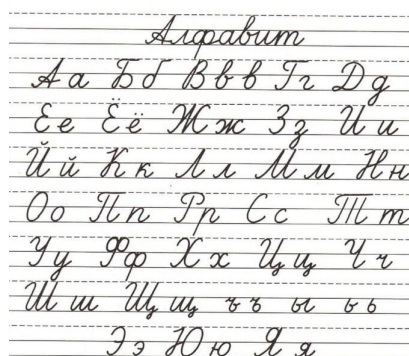 Алфавит
Аа БбВвв Гг Дд
Ее Ёё Жж Зз Ии
Йй Кк Лл Мм Нн
Оо Пп Рр Сс Тт
Уу Фф Хх Цц Чч
Шш Щщ ъъ ы ьь
Ээ Юю Яя